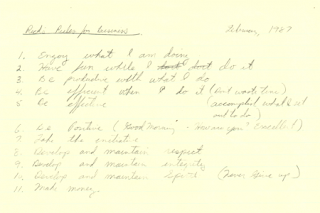 Rules for business February, 1987
1. Enjoy what I am doing
2. Have fun while I do it
3. Be productive with what I do
4. Be efficient when I do it (don't waste time)
5. Be effective (accomplish what I set out to do)
6. Be Positive ("Good Morning"
7. Take the initiative
8. Develop and maintain respect
9. Develop and maintain integrity
10. Develop and maintain (Never give up)
11. Make money